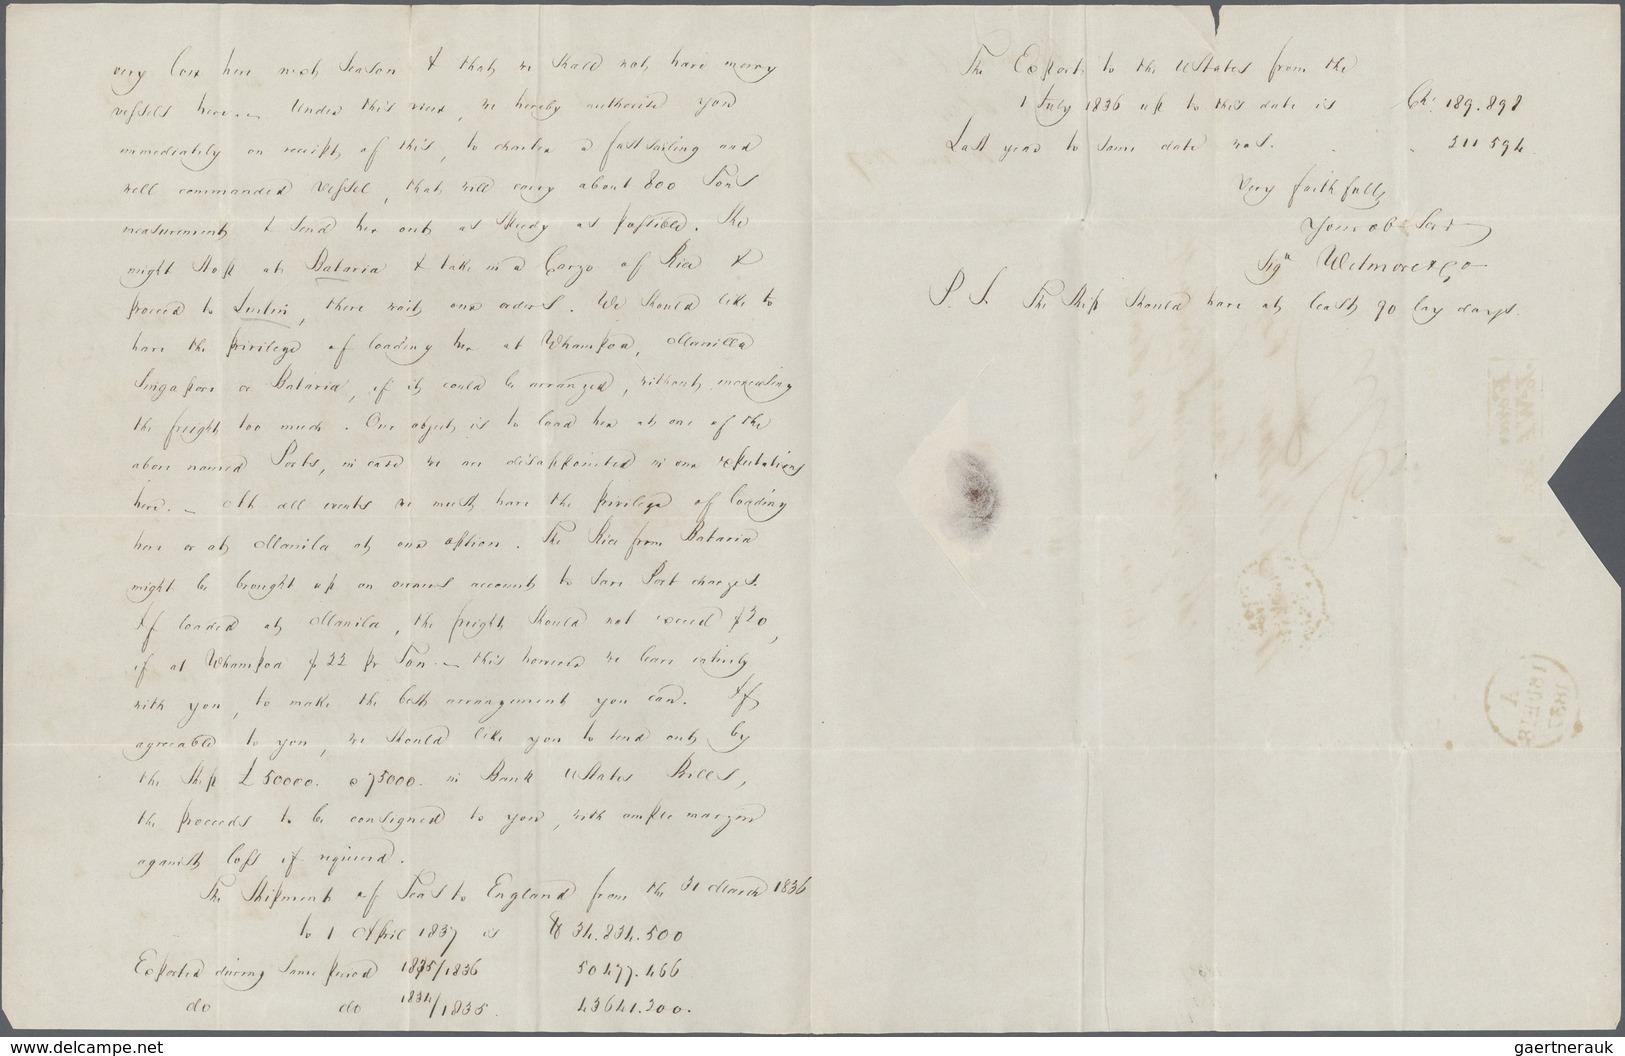 very low here next season & that we shall not have many
vessels here. — Under this view, we hereby authorise you
immediately on receipt of this, to charter a fast sailing and
well commanded Vessel, that will carry about 800 Tons
measurement & send her out as speedy as possible. She
might stop at Batavia & take in a Cargo of Rice &
proceed to Lintin, there wait our orders. We should like to
have the privilege of loading her at Whampoa, Manilla
Singapore or Batavia, if it could be arranged, without increasing
the freight too much. Our object is to load her at one of the
above named Ports, in case we are disappointed in our expectations
here. — At all events we must have the privilege of loading
here or at Manila at our option. The Rice from Batavia
might be brought up on owners account to save Port charges.
If loaded at Manila, the freight should not exceed $20,
if at Whampoa $22 pr Ton. — this however we leave entirely
with you, to make the best arrangement you can. If
agreeable to you, we should like you to send out by
the Ship £50000. o 75000. in Bank UStates Bills,
the proceeds to be consigned to you, with ample margin
against loss if required.
The Shipment of Teas to England from the 31 March 1836
to 1 April 1837 is ℔ 34.834.500
Exported during same period 1835/1836 50477.466
do do 1834/1835. 43641.200.
The Export to the UStates from the
1 July 1836 up to this date is Ch: 189.898
Last year to same date was. 211 594
Very faithfully
Your ob Serv
Sigd Wetmore & Co
P. S. The Ship should have at least 90 lay days.
1837
gaertnerauk
www.delcampe.net